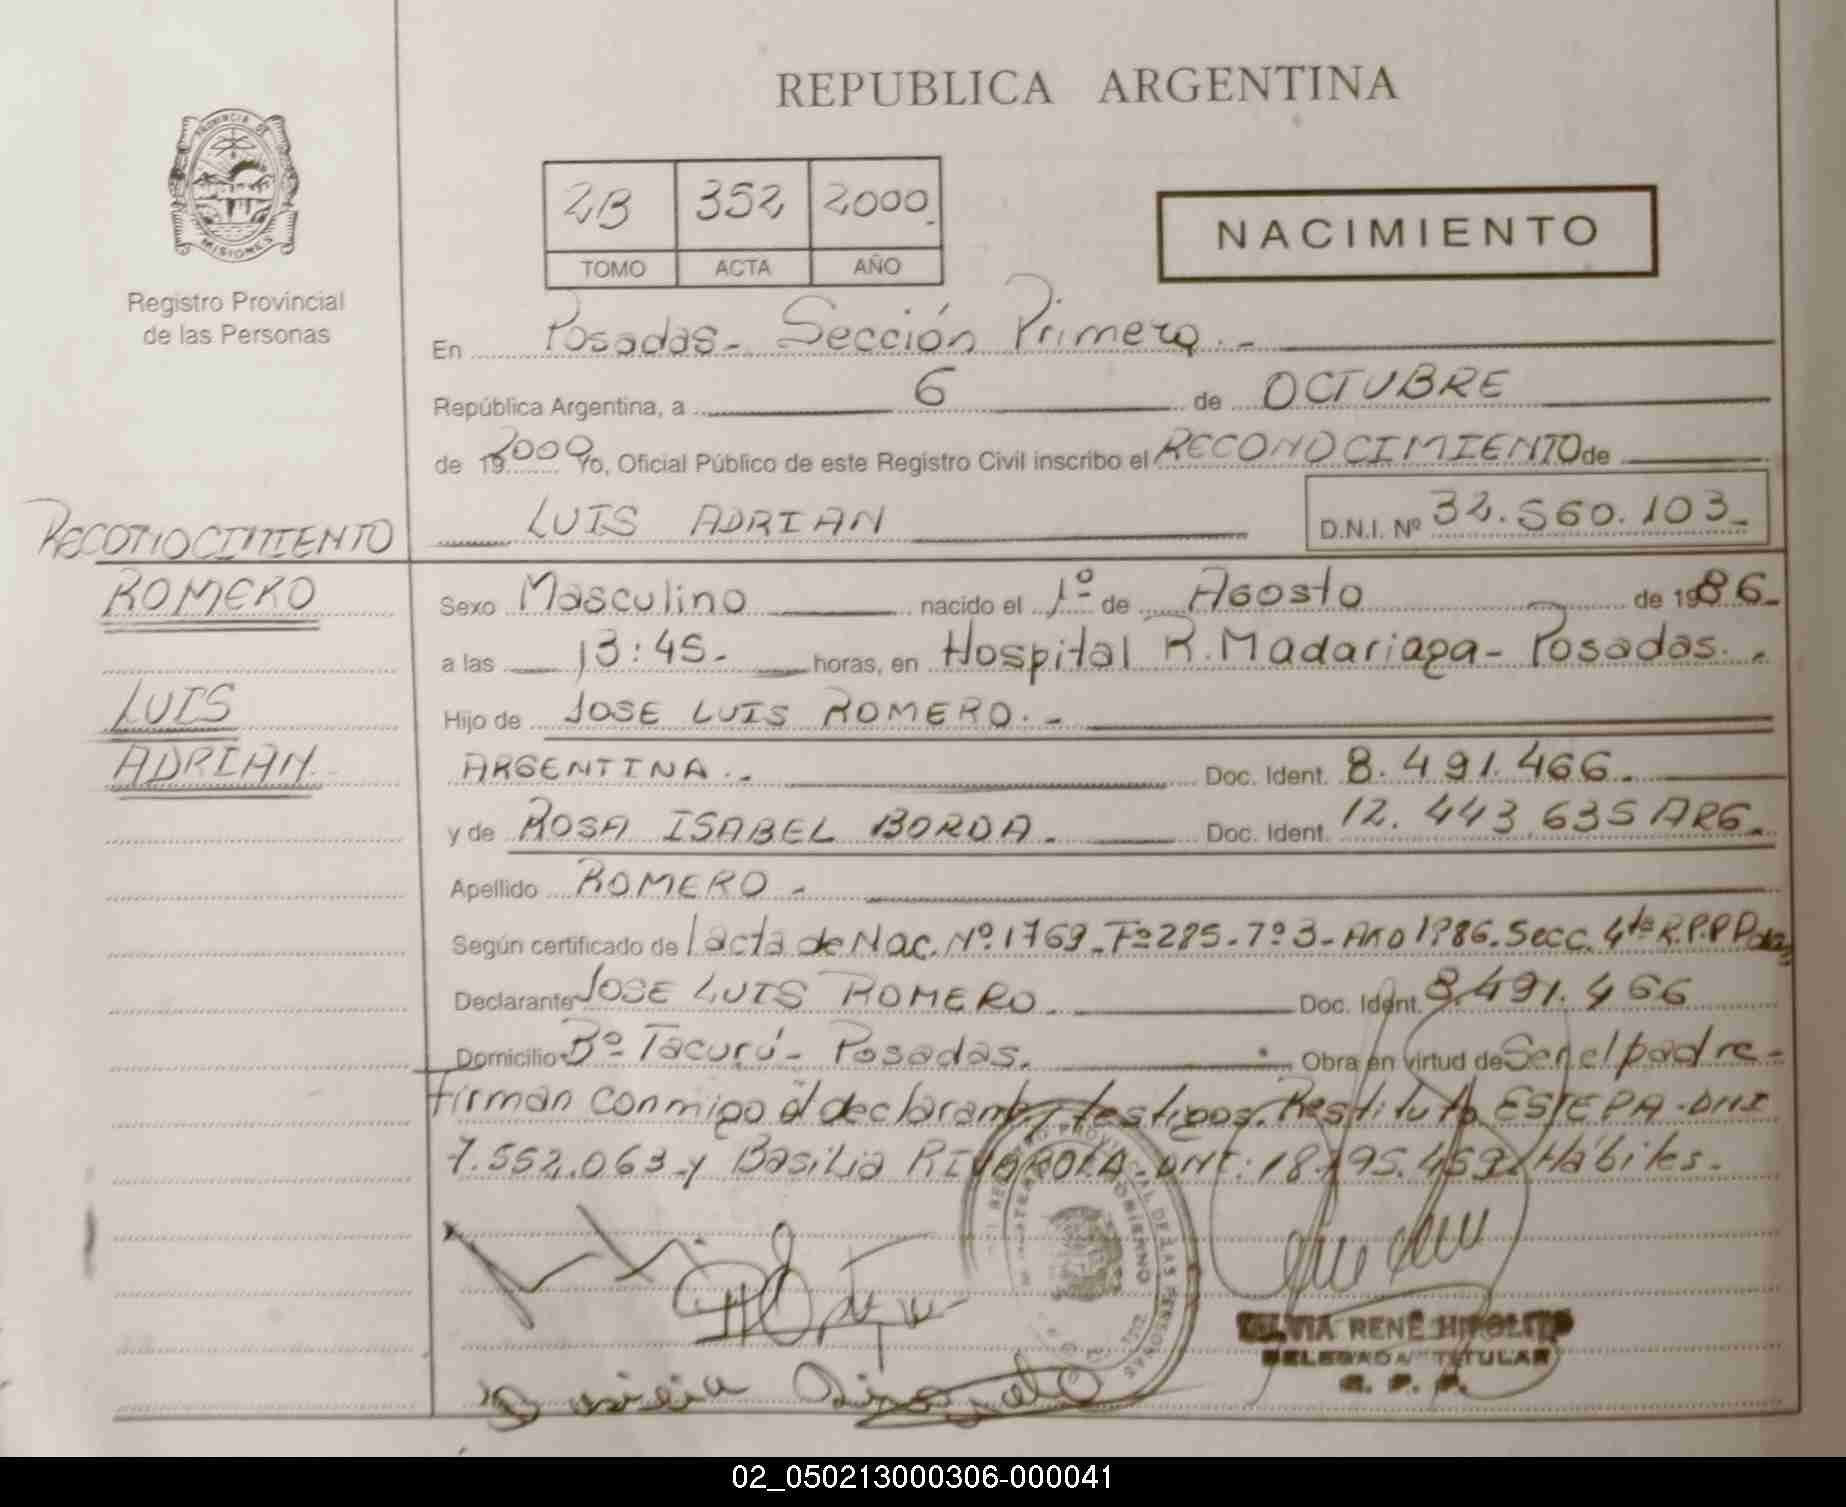 REPUBLICA ARGENTINA
PROVINCIA DE MISIONES
Registro Provincial
de las Personas
2B 352 2000
TOMO ACTA AÑO
NACIMIENTO
En Posadas - Sección Primera. -
República Argentina, a 6 de OCTUBRE
de 19 2000 Yo, Oficial Público de este Registro Civil inscribo el RECONOCIMIENTO de
LUIS ADRIAN D.N.I. Nº 32.560.103-
RECONOCIMIENTO
ROMERO
LUIS
ADRIAN
Sexo Masculino nacido el 1º de Agosto de 1986-
a las 13:45- horas, en Hospital R. Madariaga - Posadas. -
Hijo de JOSE LUIS ROMERO. -
ARGENTINA. - Doc. Ident. 8.491.466.
y de ROSA ISABEL BORDA. Doc. Ident. 12.443.635 ARG.
Apellido ROMERO -
Según certificado de acta de Nac. Nº 1769 - Fº 285 - Tº 3 - AÑO 1986. Secc. 4ta R.P.P
Declarante JOSE LUIS ROMERO. Doc. Ident. 8.491.466
Domicilio Bº Tacurú - Posadas. Obra en virtud de Ser el padre -
firman conmigo el declarante y testigos. Restituto ESTEPA - DNI
7.552.063 - y Basilia RIVAROLA - DNI: 18.195.459. Hábiles.
REGISTRO PROVINCIAL DE LAS PERSONAS
MINISTERIO GOBIERNO
SILVIA RENÉ HIPOLITO
DELEGADA TITULAR
R. P. P.
02_050213000306-000041